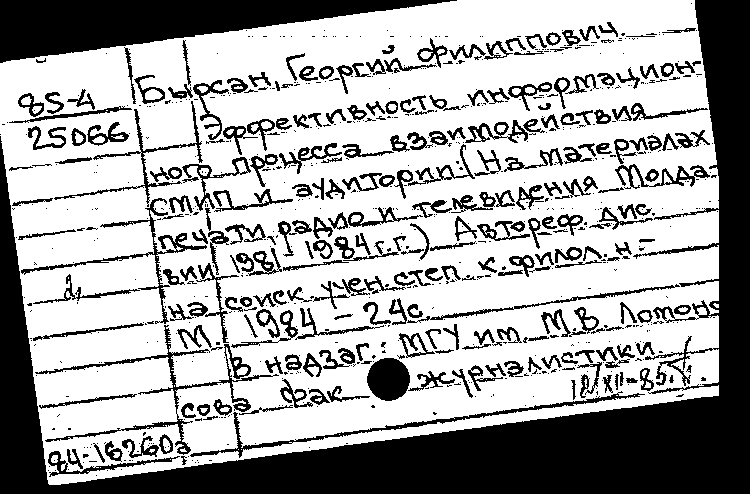 85-4
25066
Бырсан, Георгий Филиппович.
Эффективность информацион-
ного процесса взаимодействия
СМИП и аудитории: (На материалах
печати, радио и телевидения Молда-
вии 1981-1984 г.г.) Автореф. дис.
на соиск учен. степ. к. филол. н. -
М. 1984 - 24с.
В надзаг.: МГУ им. М.В. Ломоно
сова. Фак журналистики.
84-18260а